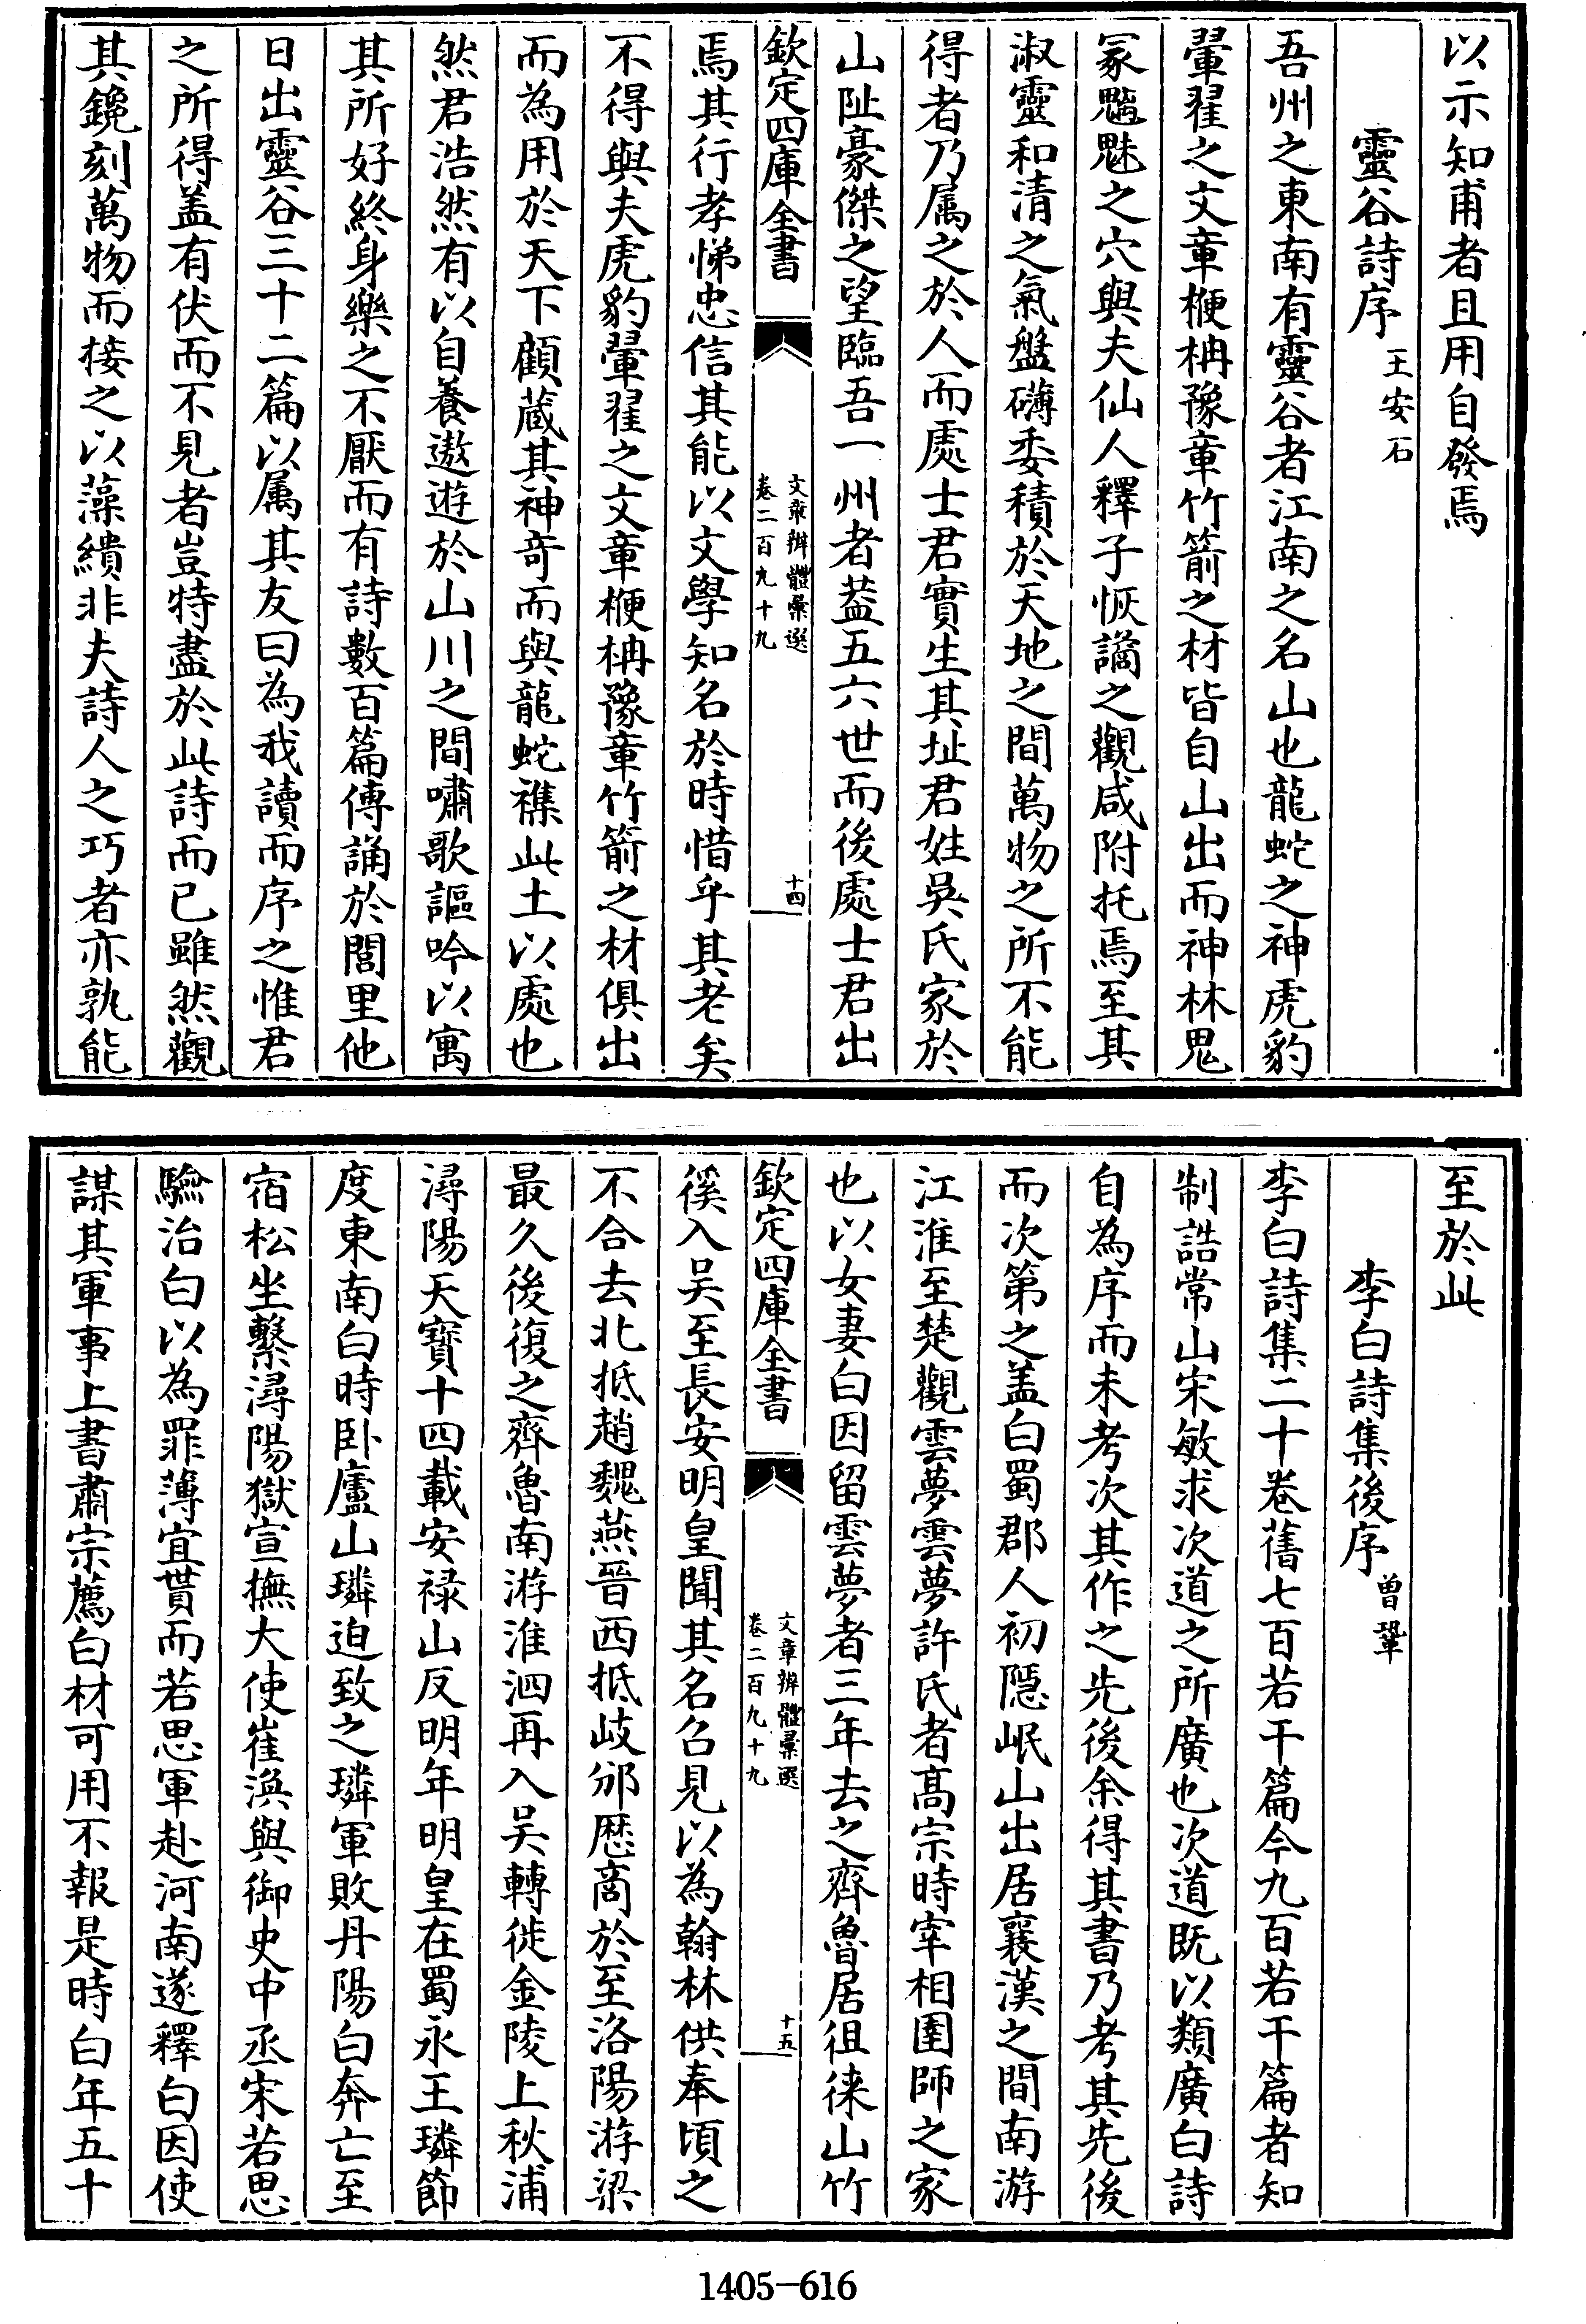 以示知甫者且用自發焉
靈谷詩序 王安石
吾州之東南有靈谷者江南之名山也龍蛇之神虎豹
翬翟之文章楩柟豫章竹箭之材皆自山出而神林鬼
冢魑魅之穴與夫仙人釋子恢譎之觀咸附托焉至其
淑靈和清之氣盤礴委積於天地之間萬物之所不能
得者乃属之於人而處士君實生其址君姓吳氏家於
山阯豪傑之望臨吾一州者葢五六世而後處士君出
欽定四庫全書
文章辨體彙選
卷二百九十九
十四
焉其行孝悌忠信其能以文學知名於時惜乎其老矣
不得與夫虎豹翬翟之文章楩柟豫章竹箭之材俱出
而為用於天下顧蔵其神竒而與龍蛇襍此土以處也
然君浩然有以自養遨遊於山川之間嘯歌謳吟以寓
其所好終身樂之不厭而有詩數百篇傳誦於閭里他
日出靈谷三十二篇以属其友曰為我讀而序之惟君
之所得盖有伏而不見者豈特盡於此詩而已雖然觀
其鑱刻萬物而接之以藻繢非夫詩人之巧者亦孰能
至於此
李白詩集後序 曾鞏
李白詩集二十巻舊七百若干篇今九百若干篇者知
制誥常山宋敏求次道之所廣也次道既以類廣白詩
自為序而未考次其作之先後余得其書乃考其先後
而次第之盖白蜀郡人初隠岷山出居襄漢之間南游
江淮至楚觀雲夢雲夢許氏者髙宗時宰相圉師之家
也以女妻白因留雲夢者三年去之齊魯居徂徠山竹
欽定四庫全書
文章辨體彙選
卷二百九十九
十五
徯入吴至長安明皇聞其名召見以為翰林供奉頃之
不合去北抵趙魏燕晉西抵歧邠厯商於至洛陽游梁
最久後復之齊魯南游淮泗再入吴轉徙金陵上秋浦
潯陽天寶十四載安禄山反明年明皇在蜀永王璘節
度東南白時卧廬山璘迫致之璘軍敗丹陽白奔亡至
宿松坐繋潯陽獄宣撫大使崔渙與御史中丞宋若思
驗治白以為罪薄宜貰而若思軍赴河南遂釋白因使
謀其軍事上書肅宗薦白材可用不報是時白年五十
1405-616